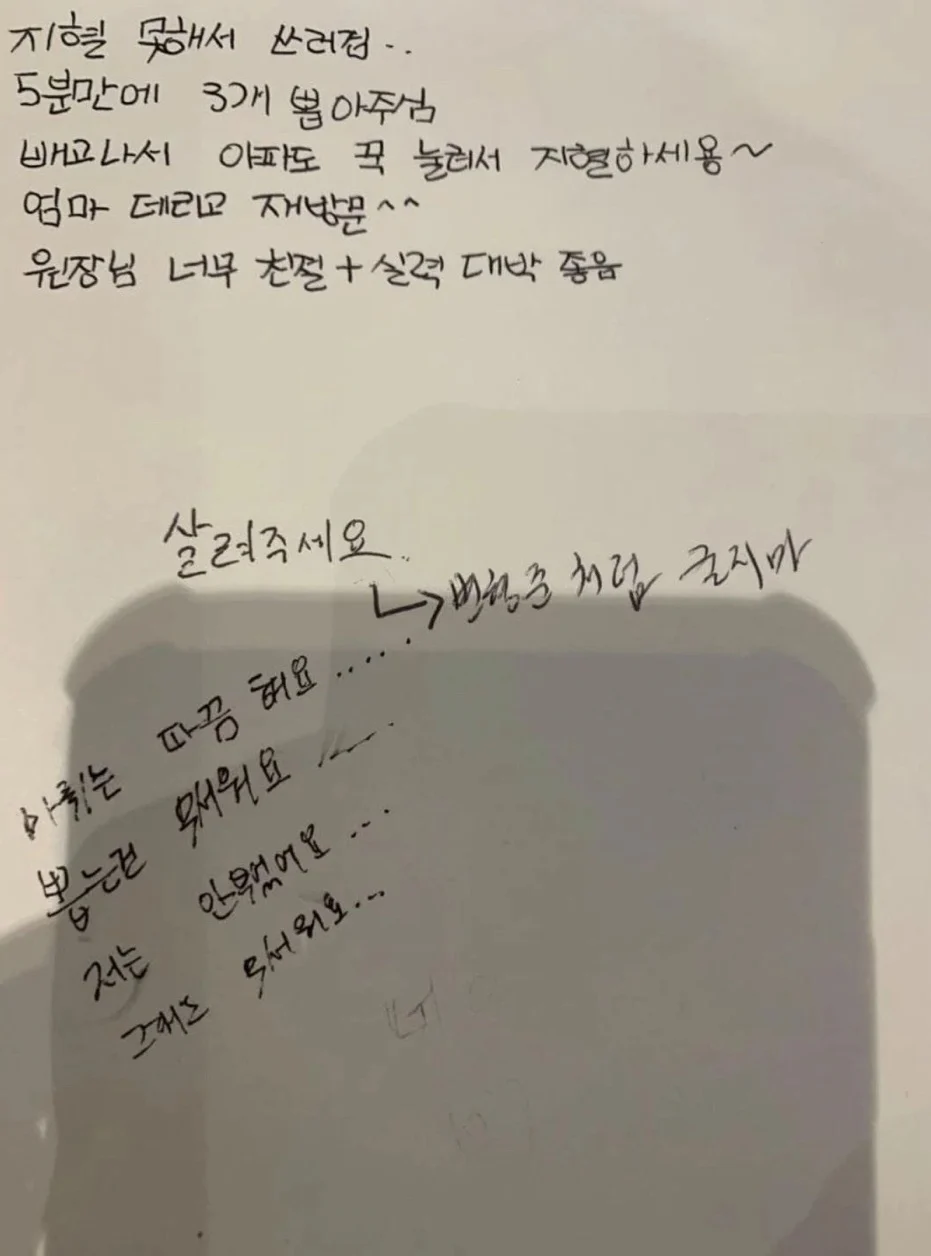 지혈 못해서 쓰러짐..
5분만에 3개 뽑아주심
빼고나서 아파도 꾹 눌러서 지혈하세용~
엄마 데리고 재방문^^
원장님 너무 친절+실력 대박 좋음
살려주세요..
↳ 변형준 처럼 굴지마
마취는 따끔 해요.....
뽑는건 무서워요
저는 안무섭어요...
그래도 무서워요...